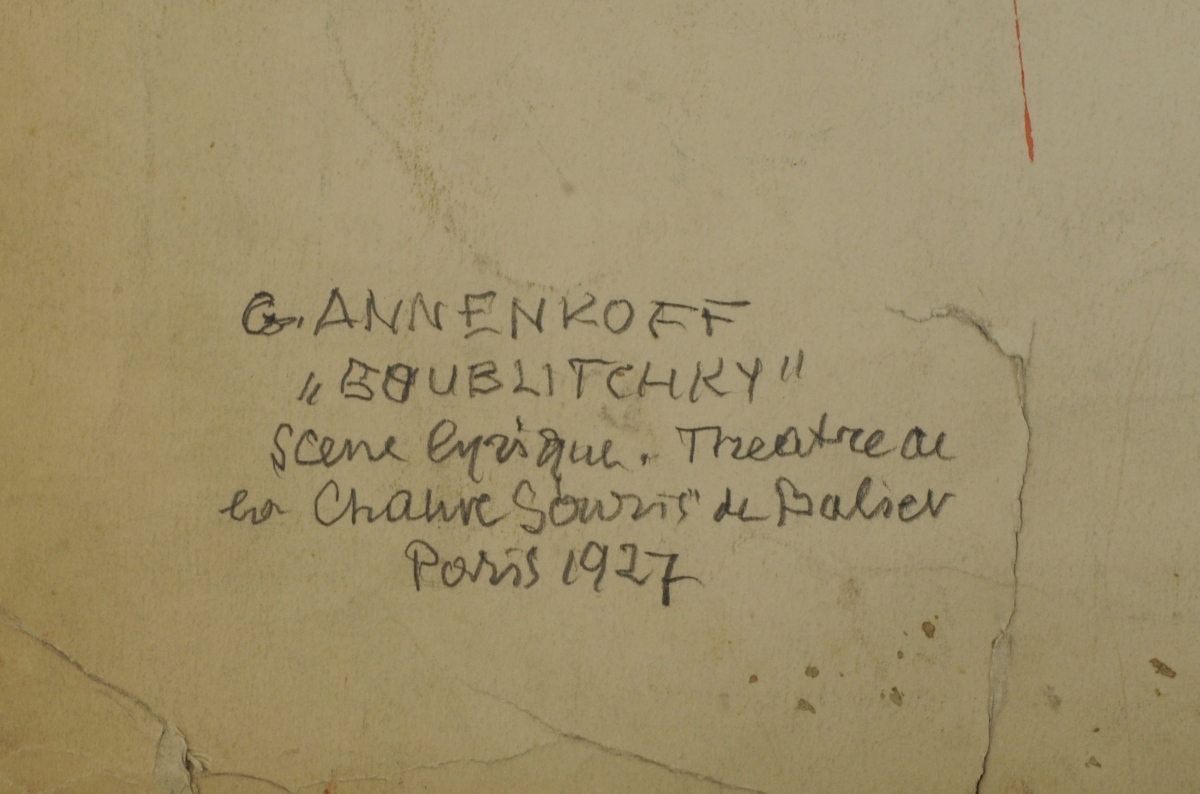 G. ANNENKOFF
"BOUBLITCHKY"
Scene lyrique. Theatre de
la Chauve Souris" de Baliev
Paris 1927